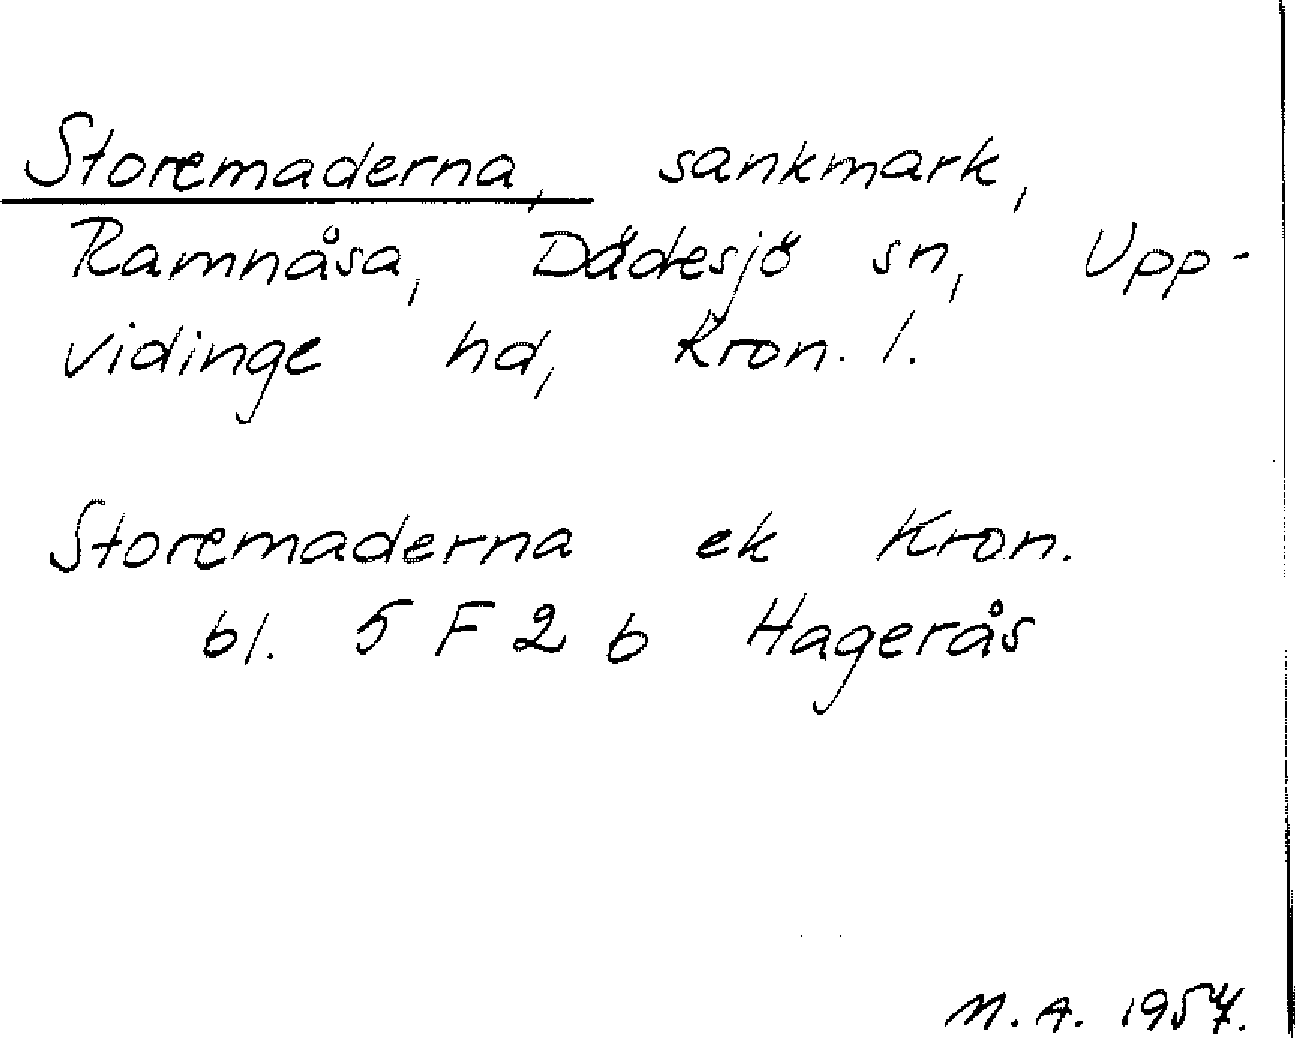 Storemaderna, sankmark,
Ramnåsa, Dädesjö sn, Upp-
vidinge hd, Kron. l.
Storemaderna ek Kron.
bl. 5 F 2 b Hagerås
M. A. 1957.